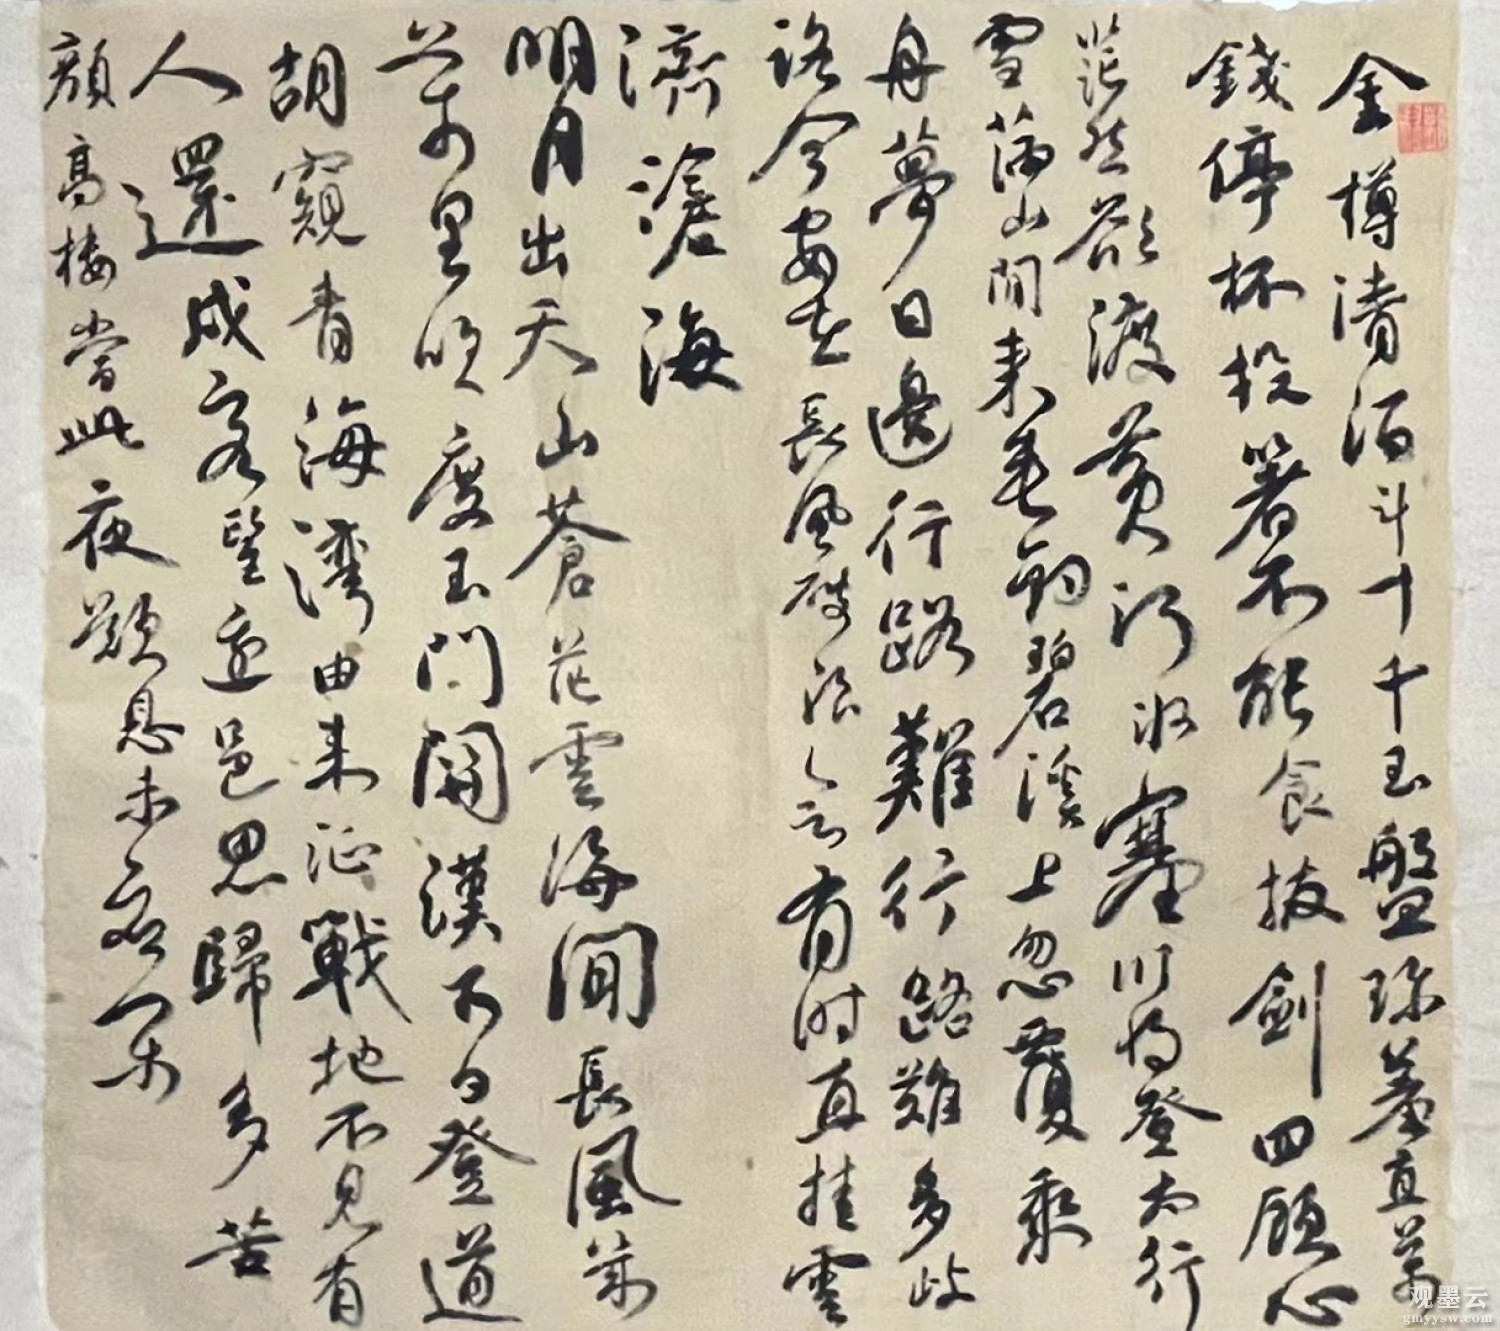 金樽清酒斗十千玉盤珍羞直萬
錢停杯投箸不能食拔劍四顧心
茫然欲渡黃河冰塞川將登太行
雪滿山閒來垂釣碧溪上忽覆乘
舟夢日邊行路難行路難多歧
路今安在長風破浪会有时直挂雲
濟滄海
明月出天山蒼茫雲海間長風幾
萬里吹度玉門關漢下白登道
胡窺青海灣由來征戰地不見有
人還戍客望邊邑思歸多苦
顏高樓當此夜歎息未應閑
观墨云
gmyysw.com